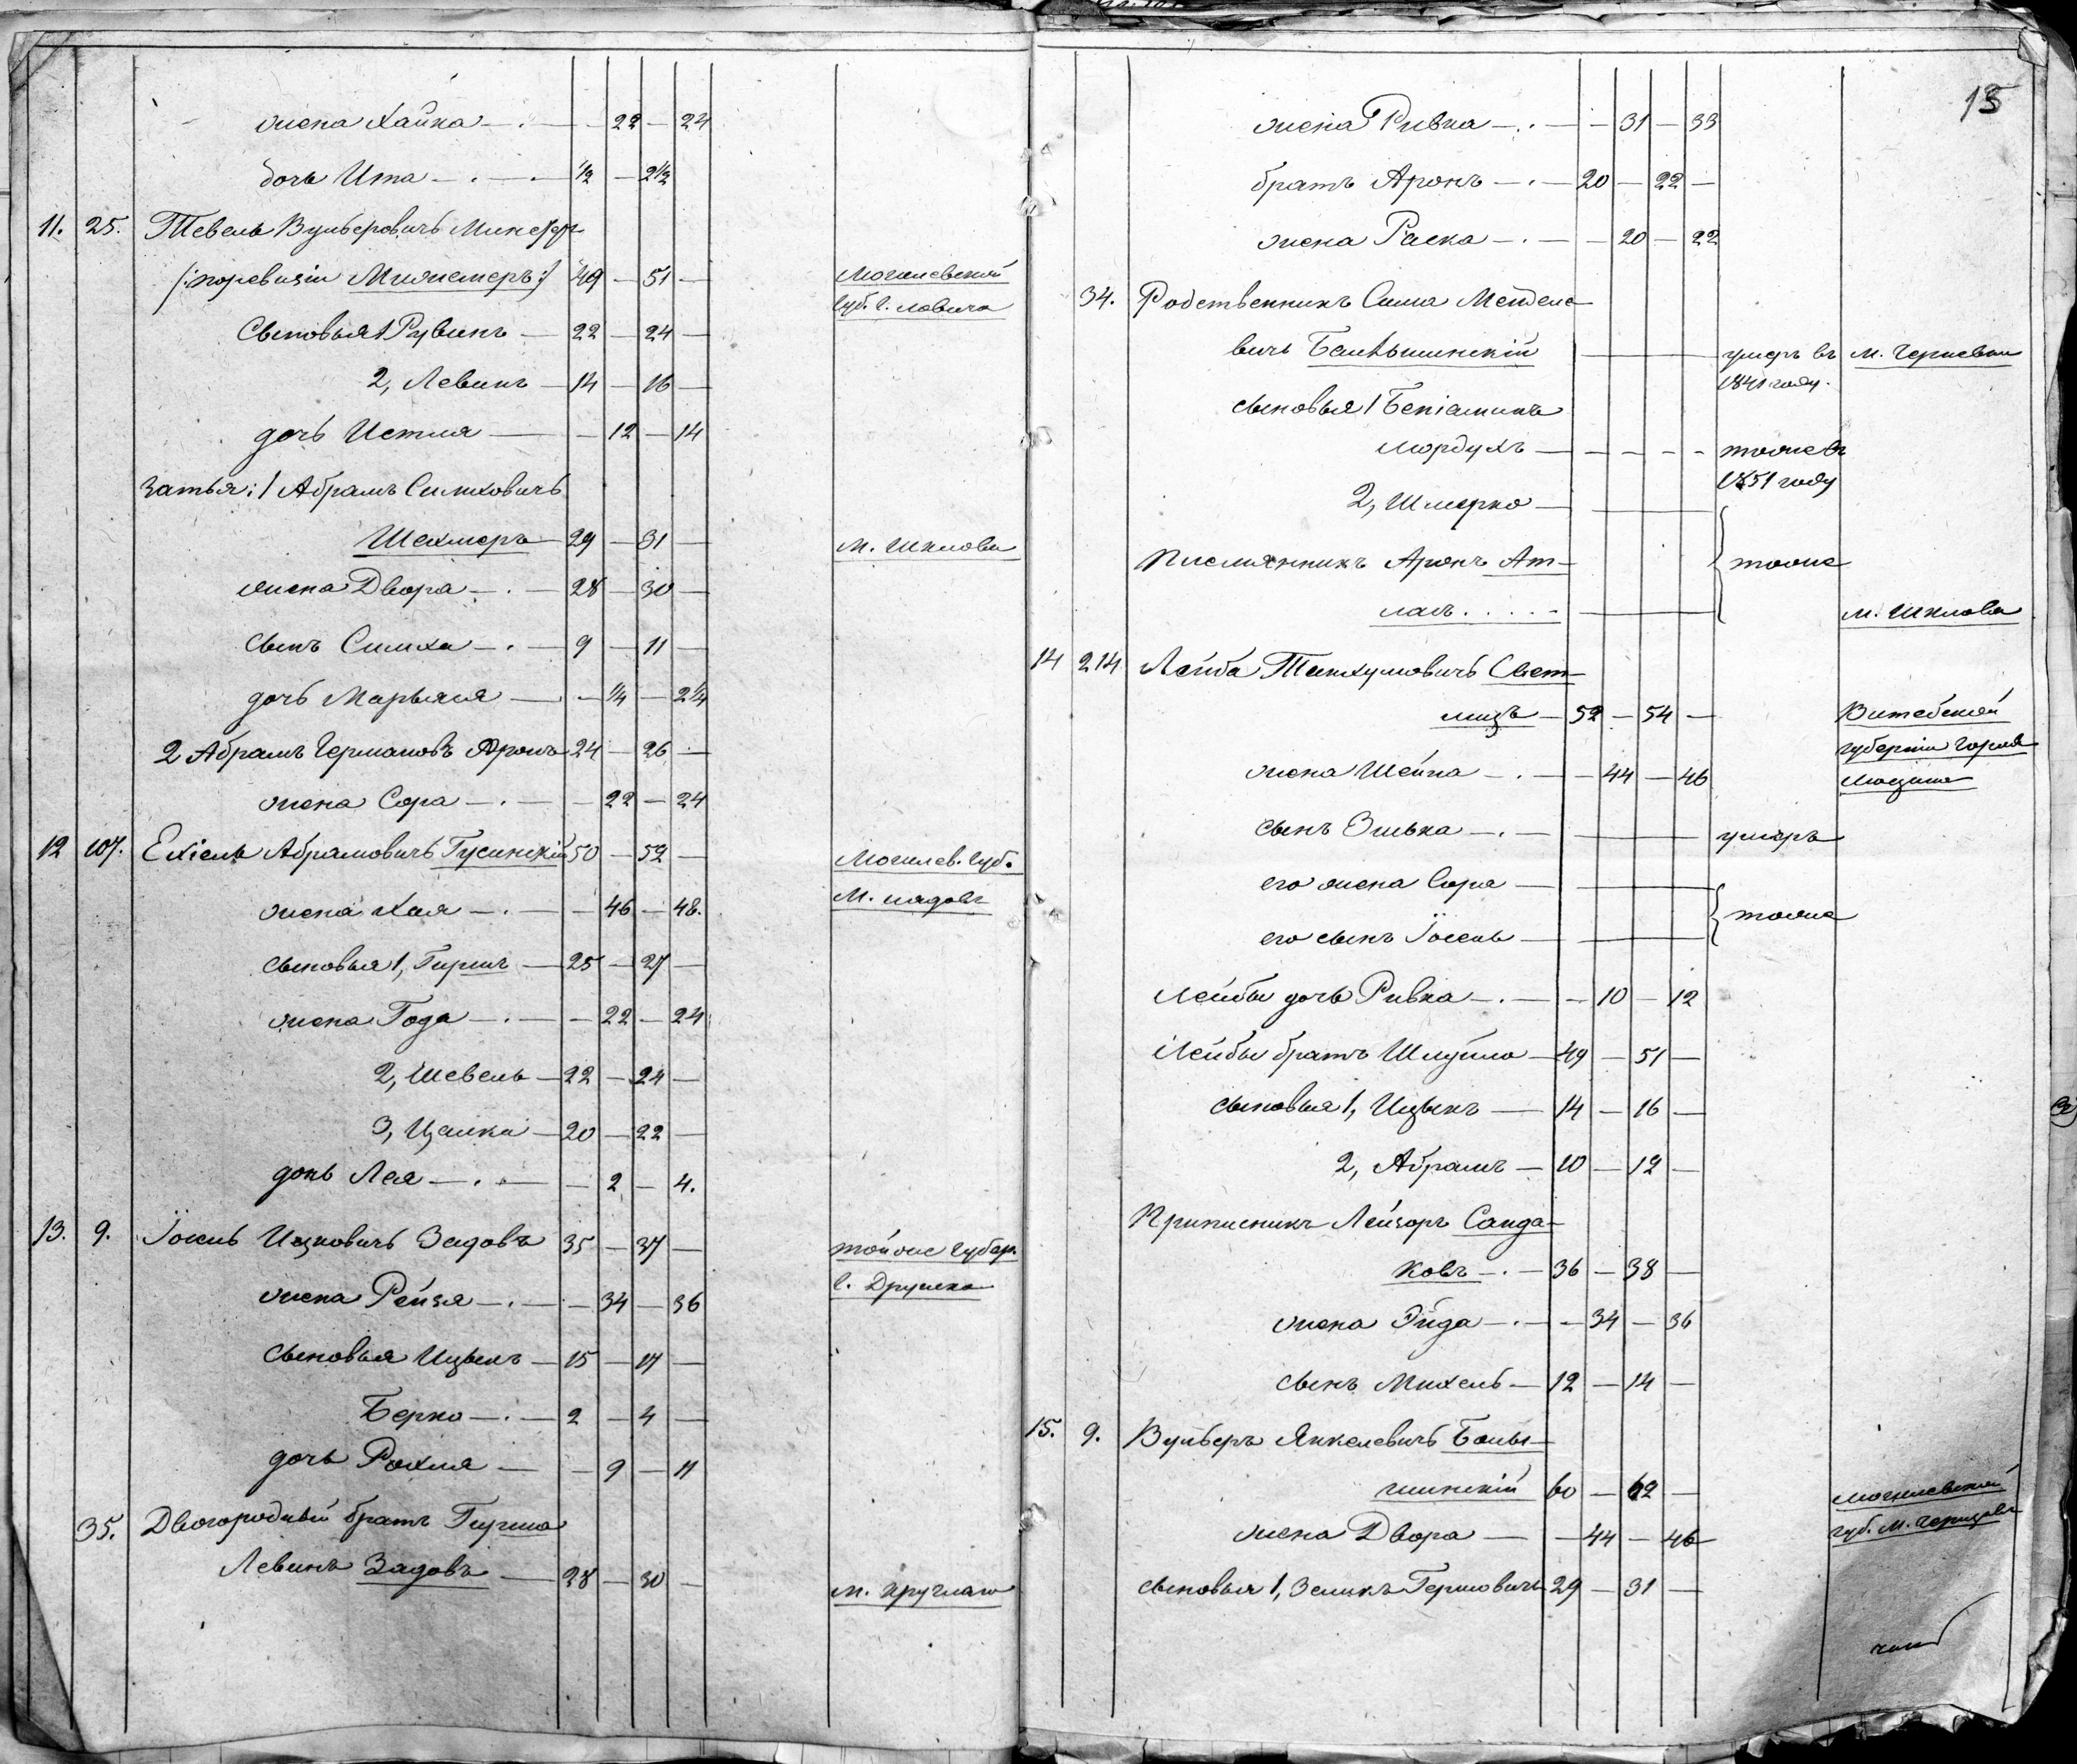 жена Хайка — . — — 22 — 24
дочь Ита — . — . ½ — 2½
11. 25. Тевель Вульфовичъ
/:поревизіи :/ 49 — 51 — Могилевской
Сыновья 1 Рувинъ — 22 — 24 — губ.
2, Левинъ — 14 — 16 —
дочь Истля — — 12 — 14
Затья: 1 Абрамъ Симховичъ
Шехтеръ 29 — 31 — м. Шклова
жена Двора — . — 28 — 30 —
сынъ Симха — . — 9 — 11 —
дочь Марьяся — — ¼ — 2¼
2 Абрамъ 24 — 26 —
жена Сора — . — — 22 — 24
12 107. Ехіель Абрамовичъ Гусинскій 50 — 52 — Могилев. Губ.
жена Хая — . — — 46 — 48. М.
сыновья 1, Гиршъ — 25 — 27 —
жена Года — . — — 22 — 24
2, Шевель — 22 — 24 —
3, Цалка — 20 — 22 —
дочь Лея — . — — 2 — 4.
13. 9. Іосель Ицковичъ Задовъ 35 — 37 — тойже Губер.
жена Рейзя — . — — 34 — 36
сыновья Ицыкъ — 15 — 17 —
Берко — . — 2 — 4 —
дочь Рохля — — 9 — 11
35. Двоюродный братъ Гирша
Левинъ Задовъ — 28 — 30 — м.
15
жена Ривка — . — — 31 — 33
братъ Аронъ — . — 20 — 22 —
жена Раска — . — — 20 — 22
34. Родственникъ Сима Менделе-
вичъ — умеръ въ м.
1841 году.
сыновья 1 Беніаминъ
Мордухъ — — — — — тоже въ
1851 году
2, Шмерко —
Племянникъ Аронъ Ат- тоже
ласъ . . . . . м. Шклова
14 214 Лейба Танхумовичъ Свет-
лицъ — 52 — 54 — Витебской
губерніи города
жена Шейна — . — — 44 — 46 Люцина
сынъ Элька — . — умеръ
его жена Сора —
его сынъ Іосель — тоже
Лейбы дочь Ривка — . — — 10 — 12
Лейбы братъ Шмуйло — 49 — 51 —
сыновья 1, Ицыкъ — 14 — 16 —
2, Абрамъ — 10 — 12 —
Приписникъ Лейзеръ Санда-
ковъ — . — 36 — 38 —
жена Эйда — . — — 34 — 36
сынъ Михель — 12 — 14 —
15. 9. Вульфъ Янкелевичъ Болы-
шинскій 60 — 62 — Могилевской
жена Двора — — 44 — 46 губ. М.
сыновья 1, Зеликъ Гершовичъ 29 — 31 —